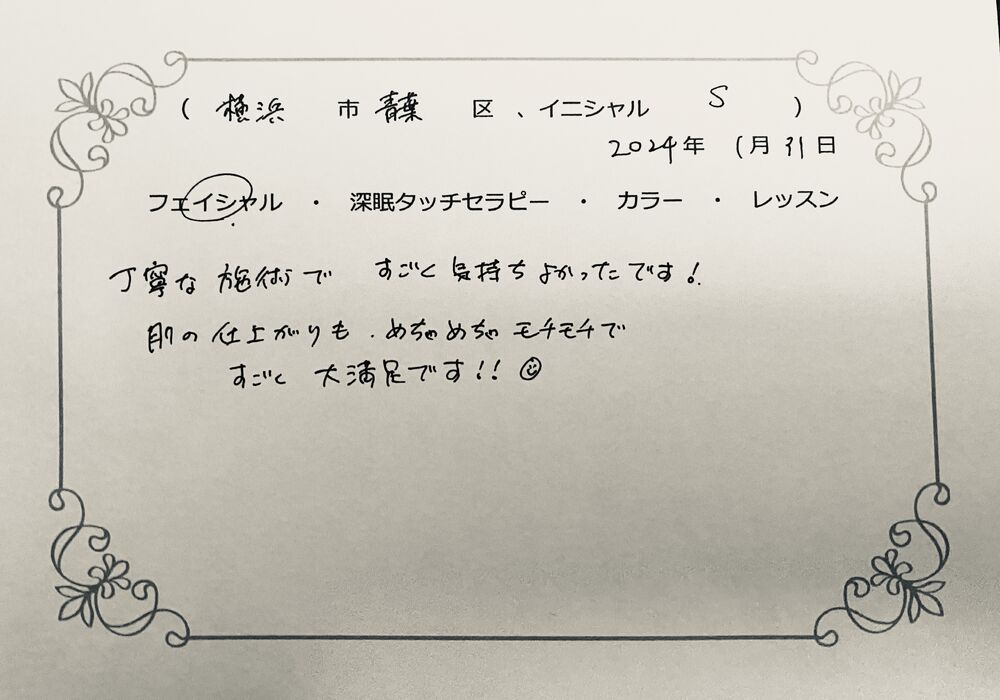 ( 横浜 市 青葉 区 、イニシャル S )
2024年 1月31日
フェイシャル ・ 深眠タッチセラピー ・ カラー ・ レッスン
丁寧な 施術で すごく 気持ち よかったです!
肌の 仕上がりも、めちゃめちゃ モチモチで
すごく 大満足です!!